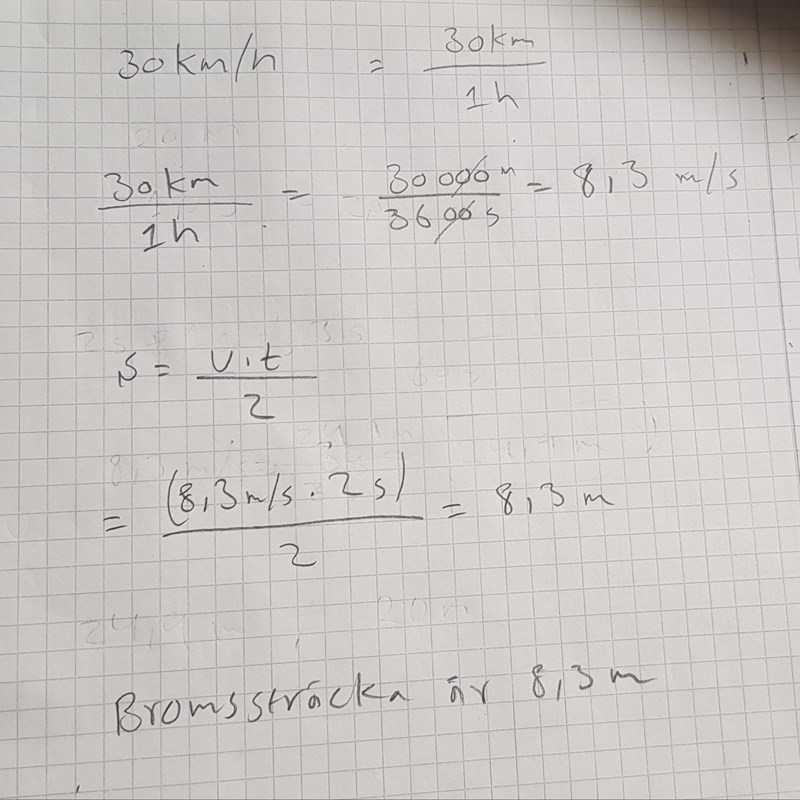 30 km/h = 30 km / 1 h
30 km / 1 h = 30 000 m / 3600 s = 8,3 m/s
s = v·t / 2
= (8,3 m/s · 2 s) / 2 = 8,3 m
Bromssträcka är 8,3 m